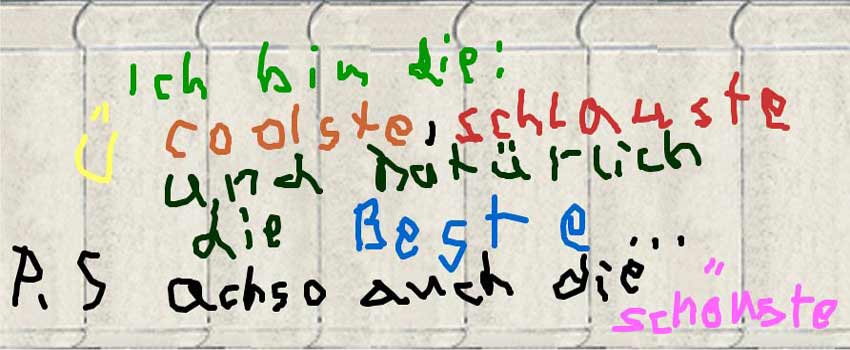 Ich bin die:
ü coolste, schlauste
und natürlich
die Beste
P.S achso auch die...
schönste